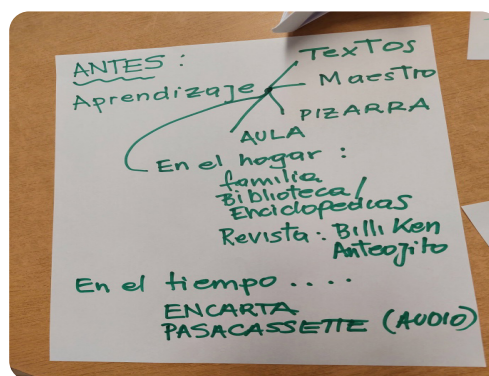 ANTES :
Aprendizaje
TexTos
Maestro
PIZARRA
AULA
En el hogar :
familia
Biblioteca/
Enciclopedias
Revista : Billi Ken
Anteojito
En el tiempo ....
ENCARTA
PASACASSETTE (AUDIO)